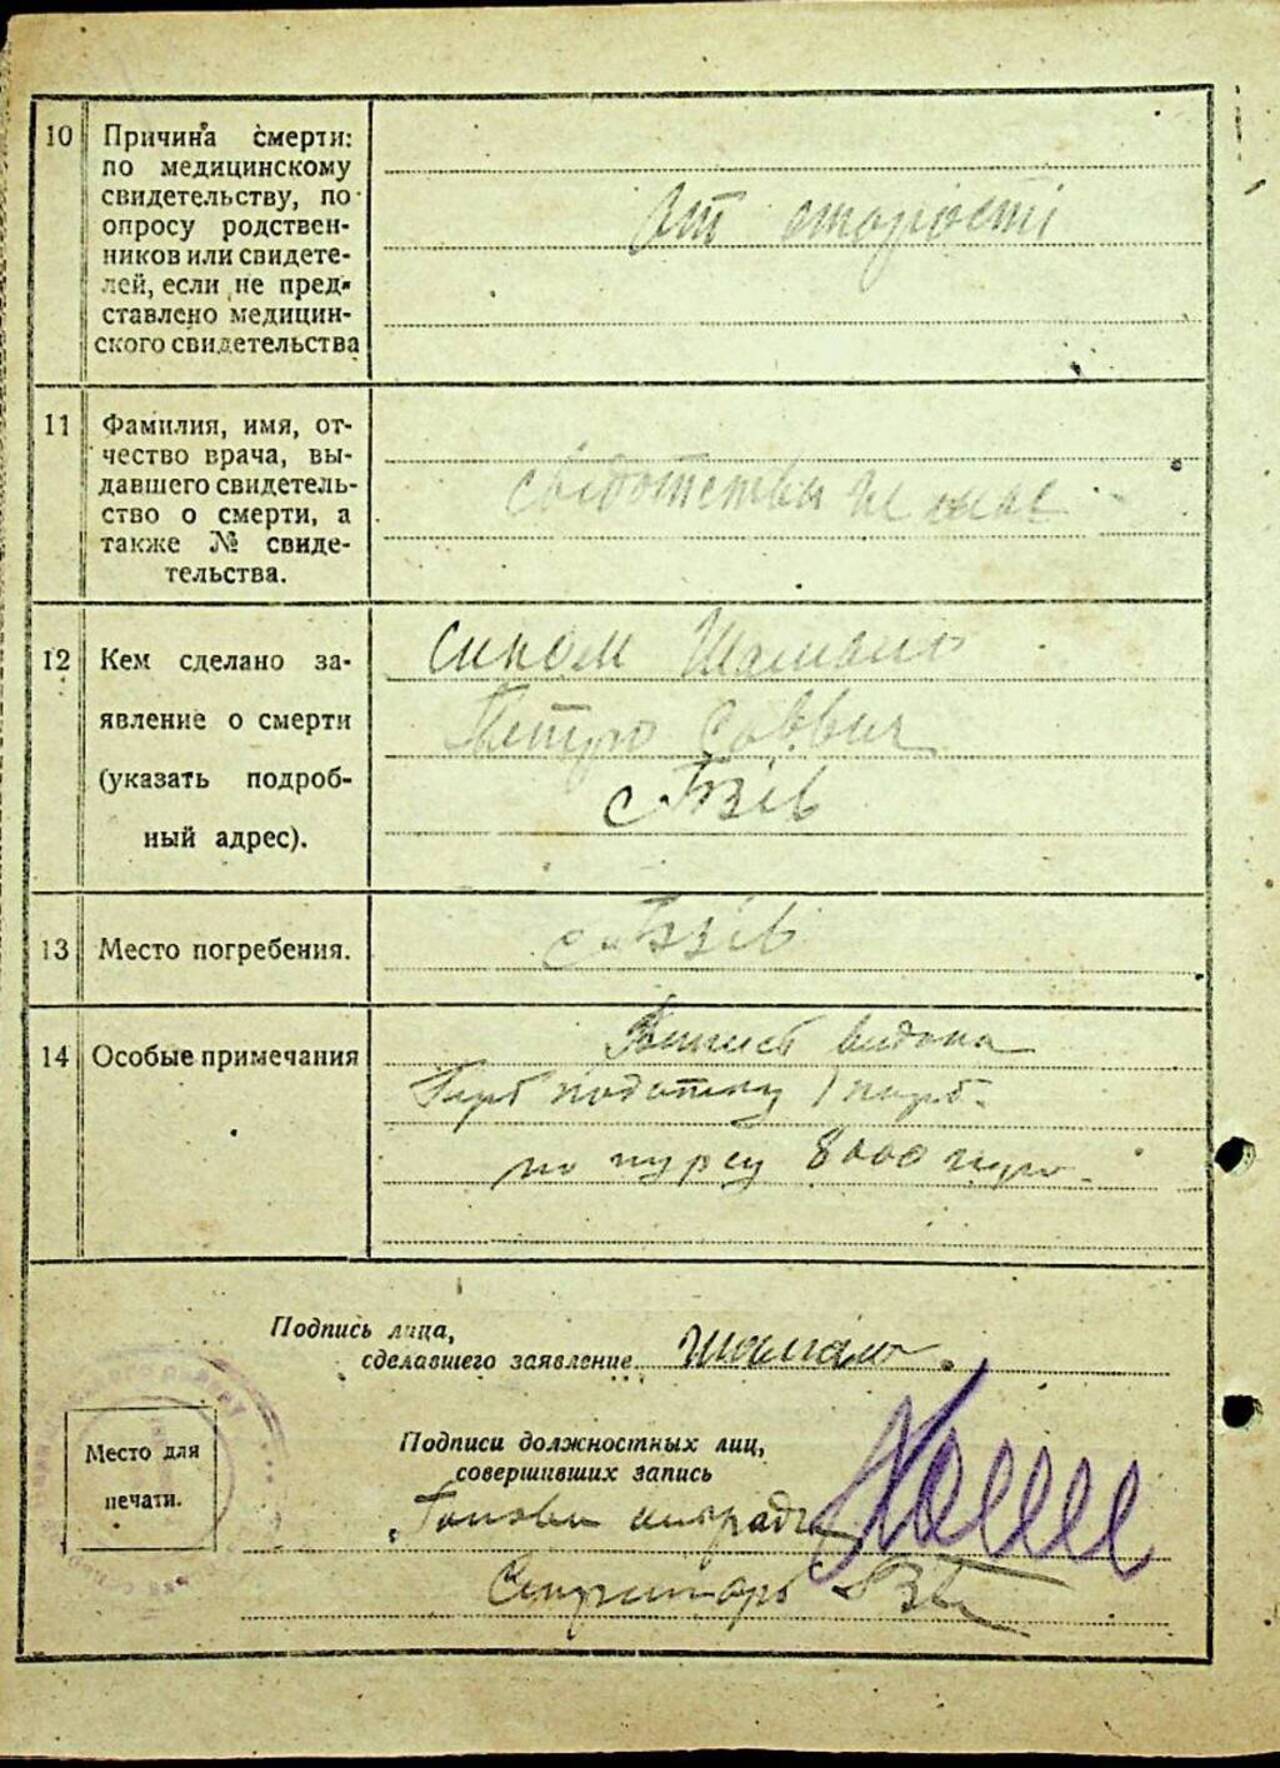 10 Причина смерти:
по медицинскому
свидетельству, по
опросу родствен-
ников или свидете-
лей, если не пред-
ставлено медицин-
ского свидетельства
От старости
11 Фамилия, имя, от-
чество врача, вы-
давшего свидетель-
ство о смерти, а
также № свиде-
тельства.
12 Кем сделано за-
явление о смерти
(указать подроб-
ный адрес).
Сином Шамаль
Петро Саввич
с. Бзів
13 Место погребения.
с. Бзів
14 Особые примечания
Випись видана
Герб податку 1 карб.
по курсу 8000
Подпись лица,
сделавшего заявление
Место для
печати.
Подписи должностных лиц,
совершивших запись
Голова
Секретарь